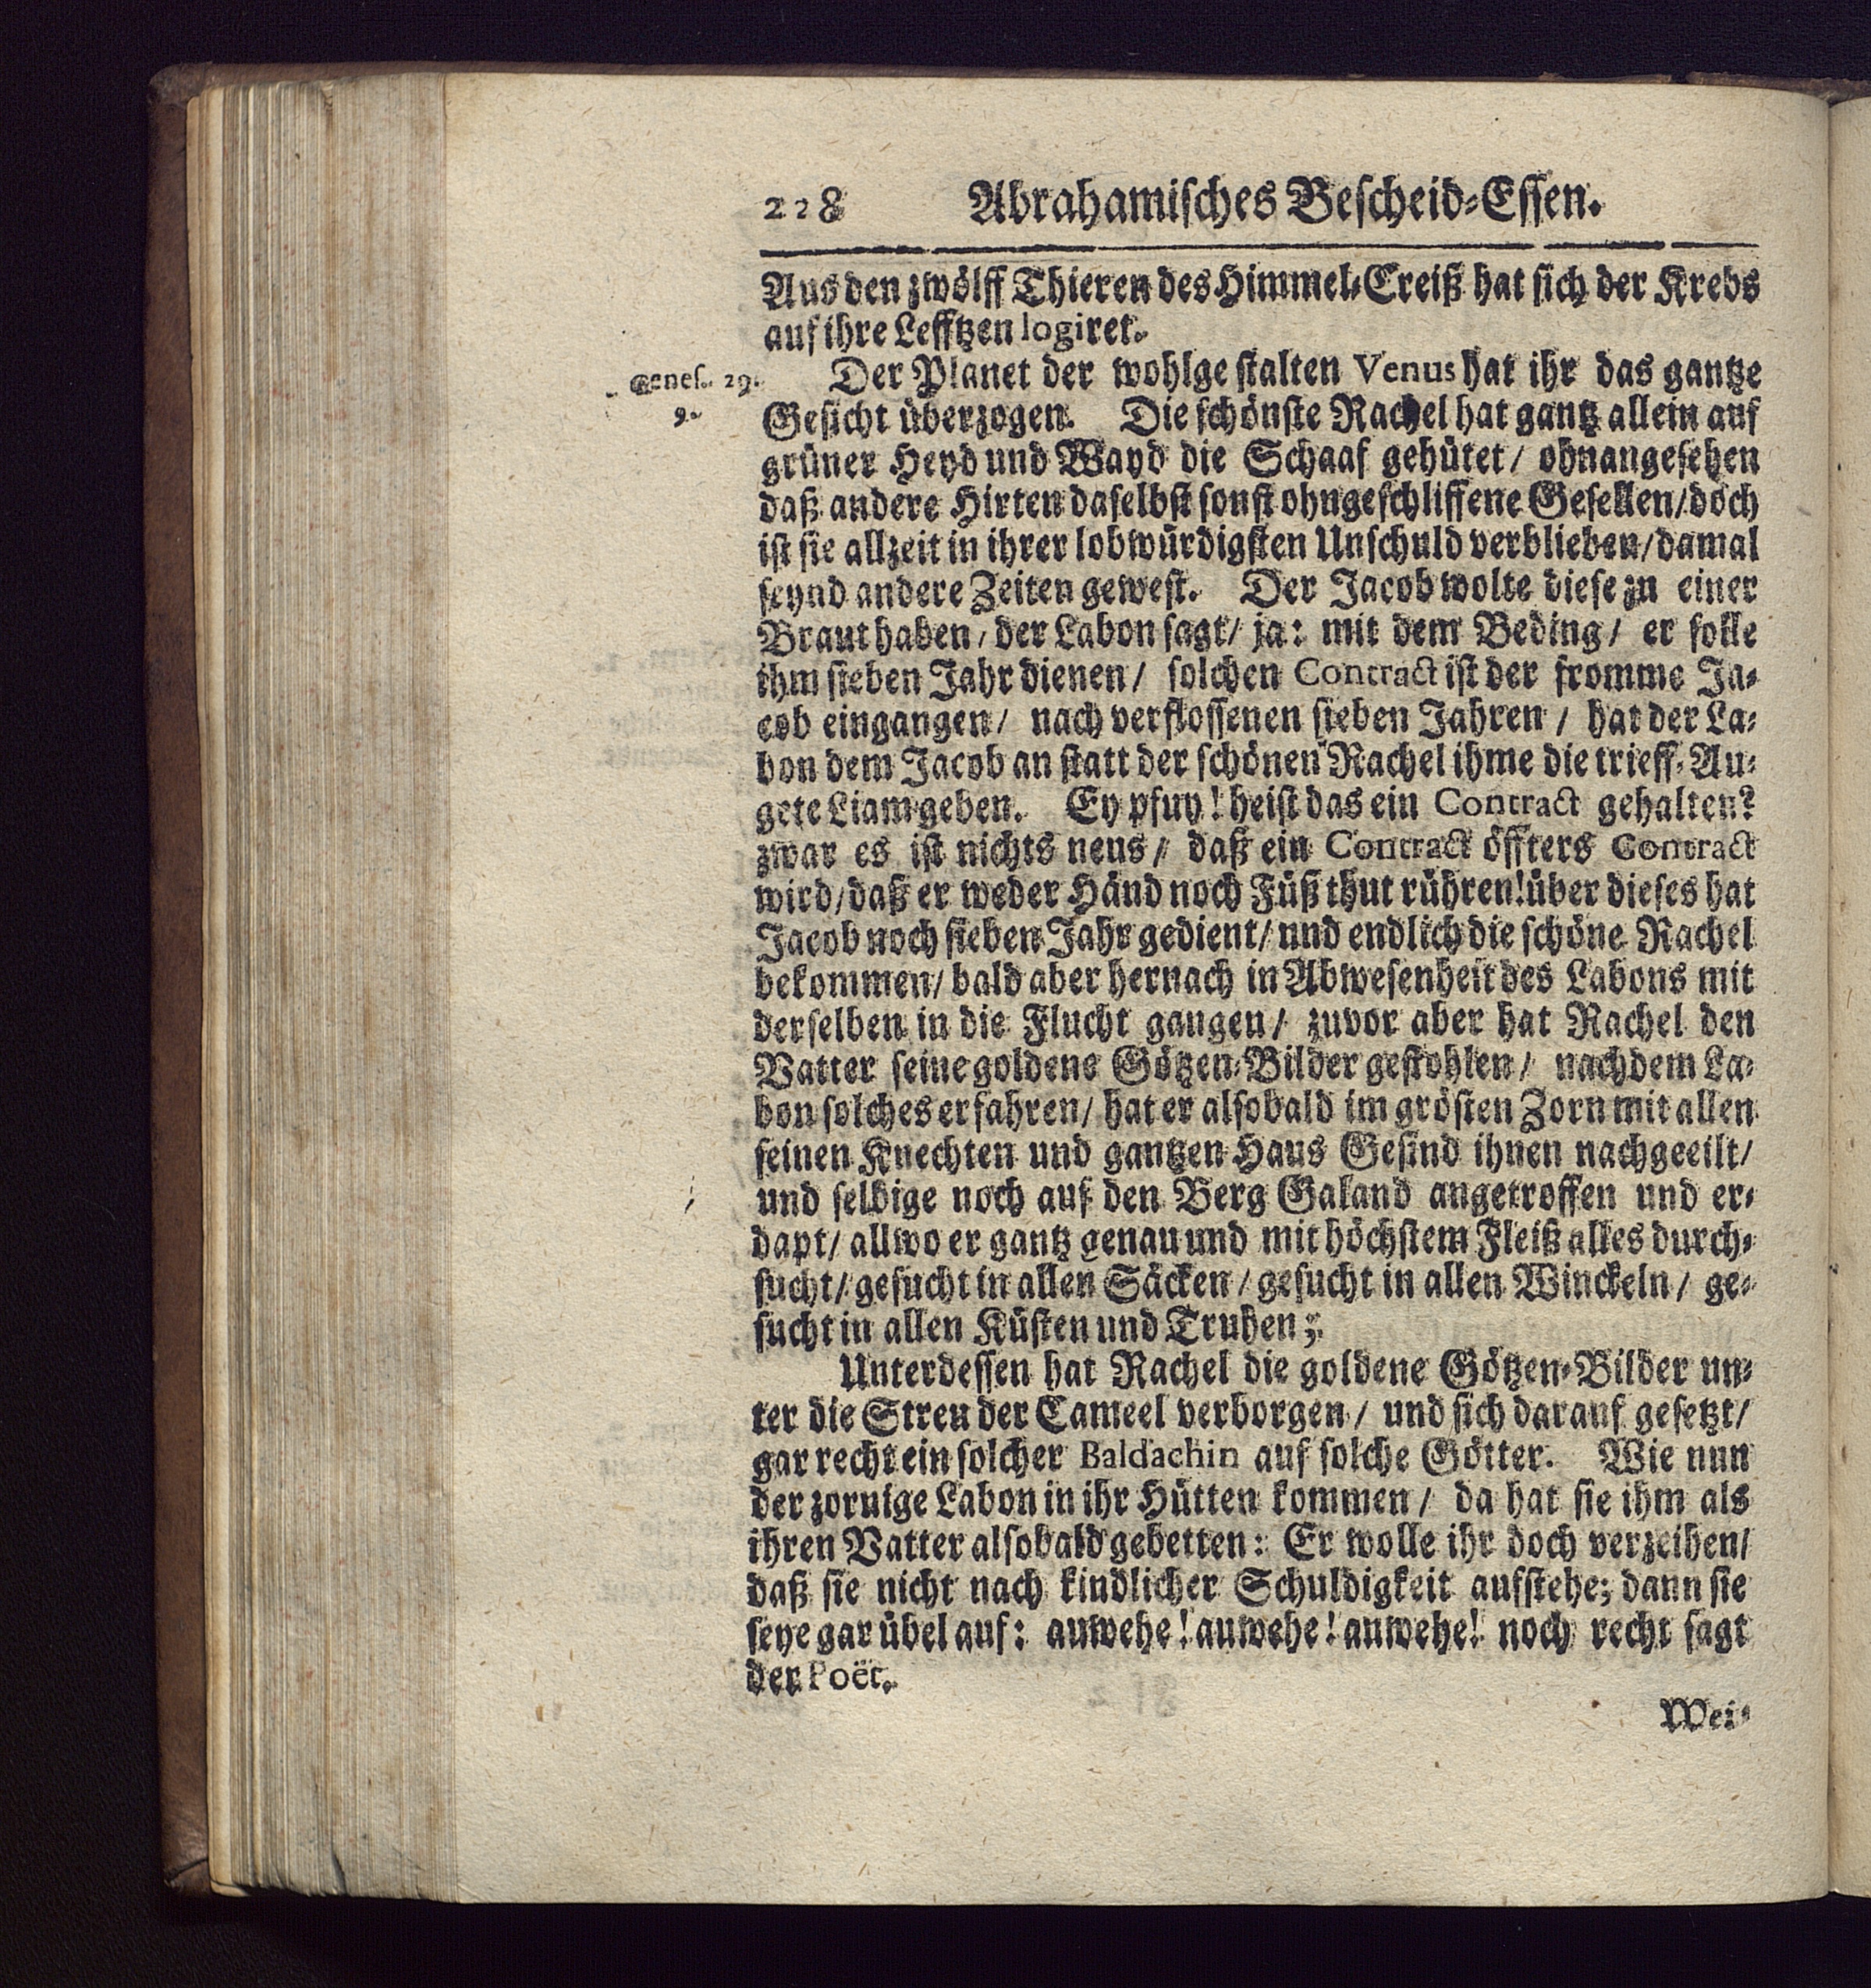 228 Abrahamisches Bescheid-Essen.
Aus den zwölff Thieren des Himmel-Creiß hat sich der Krebs
auf ihre Lefftzen logiret.
Genes. 29.
9.
Der Planet der wohlgestalten Venus hat ihr das gantze
Gesicht überzogen. Die schönste Rachel hat gantz allein auf
grüner Heyd und Wayd die Schaaf gehütet / ohnangesehen
daß andere Hirten daselbst sonst ohngeschliffene Gesellen / doch
ist sie allzeit in ihrer lobwürdigsten Unschuld verblieben / damal
seynd andere Zeiten gewest. Der Jacob wolte diese zu einer
Braut haben / der Labon sagt / ja: mit dem Beding / er solle
ihm sieben Jahr dienen / solchen Contract ist der fromme Ja-
cob eingangen / nach verflossenen sieben Jahren / hat der La-
bon dem Jacob an statt der schönen Rachel ihme die trieff-Au-
gete Liam geben. Ey pfuy! heist das ein Contract gehalten?
zwar es ist nichts neus / daß ein Contract öffters Contract
wird / daß er weder Händ noch Füß thut rühren! über dieses hat
Jacob noch sieben Jahr gedient / und endlich die schöne Rachel
bekommen / bald aber hernach in Abwesenheit des Labons mit
derselben in die Flucht gangen / zuvor aber hat Rachel den
Vatter seine goldene Götzen-Bilder gestohlen / nachdem La-
bon solches erfahren / hat er alsobald im grösten Zorn mit allen
seinen Knechten und gantzen Haus Gesind ihnen nachgeeilt /
und seldige noch auf den Berg Galand angetroffen und er-
dapt / allwo er gantz genau und mit höchstem Fleiß alles durch-
sucht / gesucht in allen Säcken / gesucht in allen Winckeln / ge-
sucht in allen Küsten und Truhen;
Unterdessen hat Rachel die goldene Götzen-Bilder un-
ter die Streu der Cameel verborgen / und sich darauf gesetzt /
gar recht ein solcher Baldachin auf solche Götter. Wie nun
der zornige Labon in ihr Hütten kommen / da hat sie ihm als
ihren Vatter alsobald gebetten: Er wolle ihr doch verzeihen /
daß sie nicht nach kindlicher Schuldigkeit aufstehe; dann sie
seye gar übel auf: auwehe! auwehe! auwehe! noch recht sagt
der Poët.
Wei-